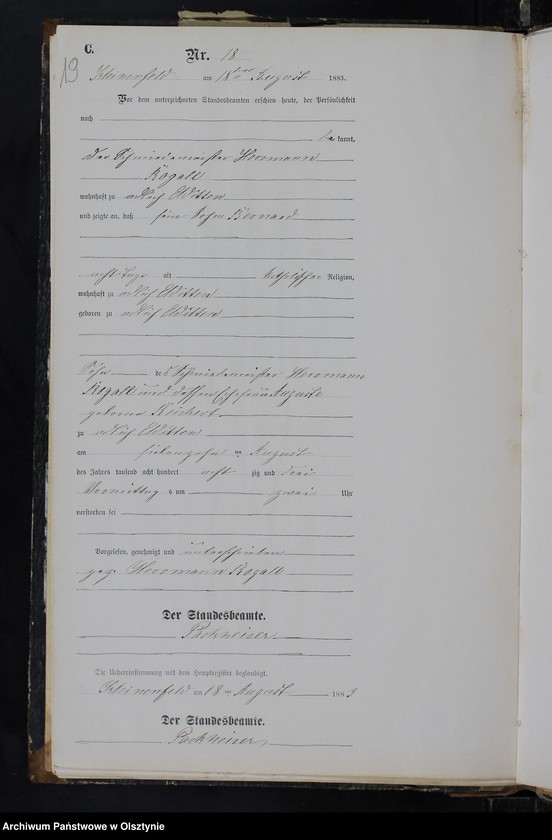 C.
Nr. 18
13
Kleinenfeld am 18ten August 1883.
Vor dem unterzeichneten Standesbeamten erschien heute, der Persönlichkeit
nach
be kannt,
der Schmiedemeister Herrmann
Rogall
wohnhaft zu adlich Witten
und zeigte an, daß sein Sohn Bernard
acht Tage alt katholischer Religion,
wohnhaft zu adlich Witten
geboren zu adlich Witten
Sohn des Schmiedemeister Herrmann
Rogall und dessen Ehefrau Auguste
geborne Reichert
zu adlich Witten
am siebenzehn ten August
des Jahres tausend acht hundert acht zig und drei
Vormittag s um zwei Uhr
verstorben sei
Vorgelesen, genehmigt und unterschrieben
gez. Herrmann Rogall
Der Standesbeamte.
Die Uebereinstimmung mit dem Hauptregister beglaubigt.
Kleinenfeld am 18 ten August 1883
Der Standesbeamte.
Archiwum Państwowe w Olsztynie